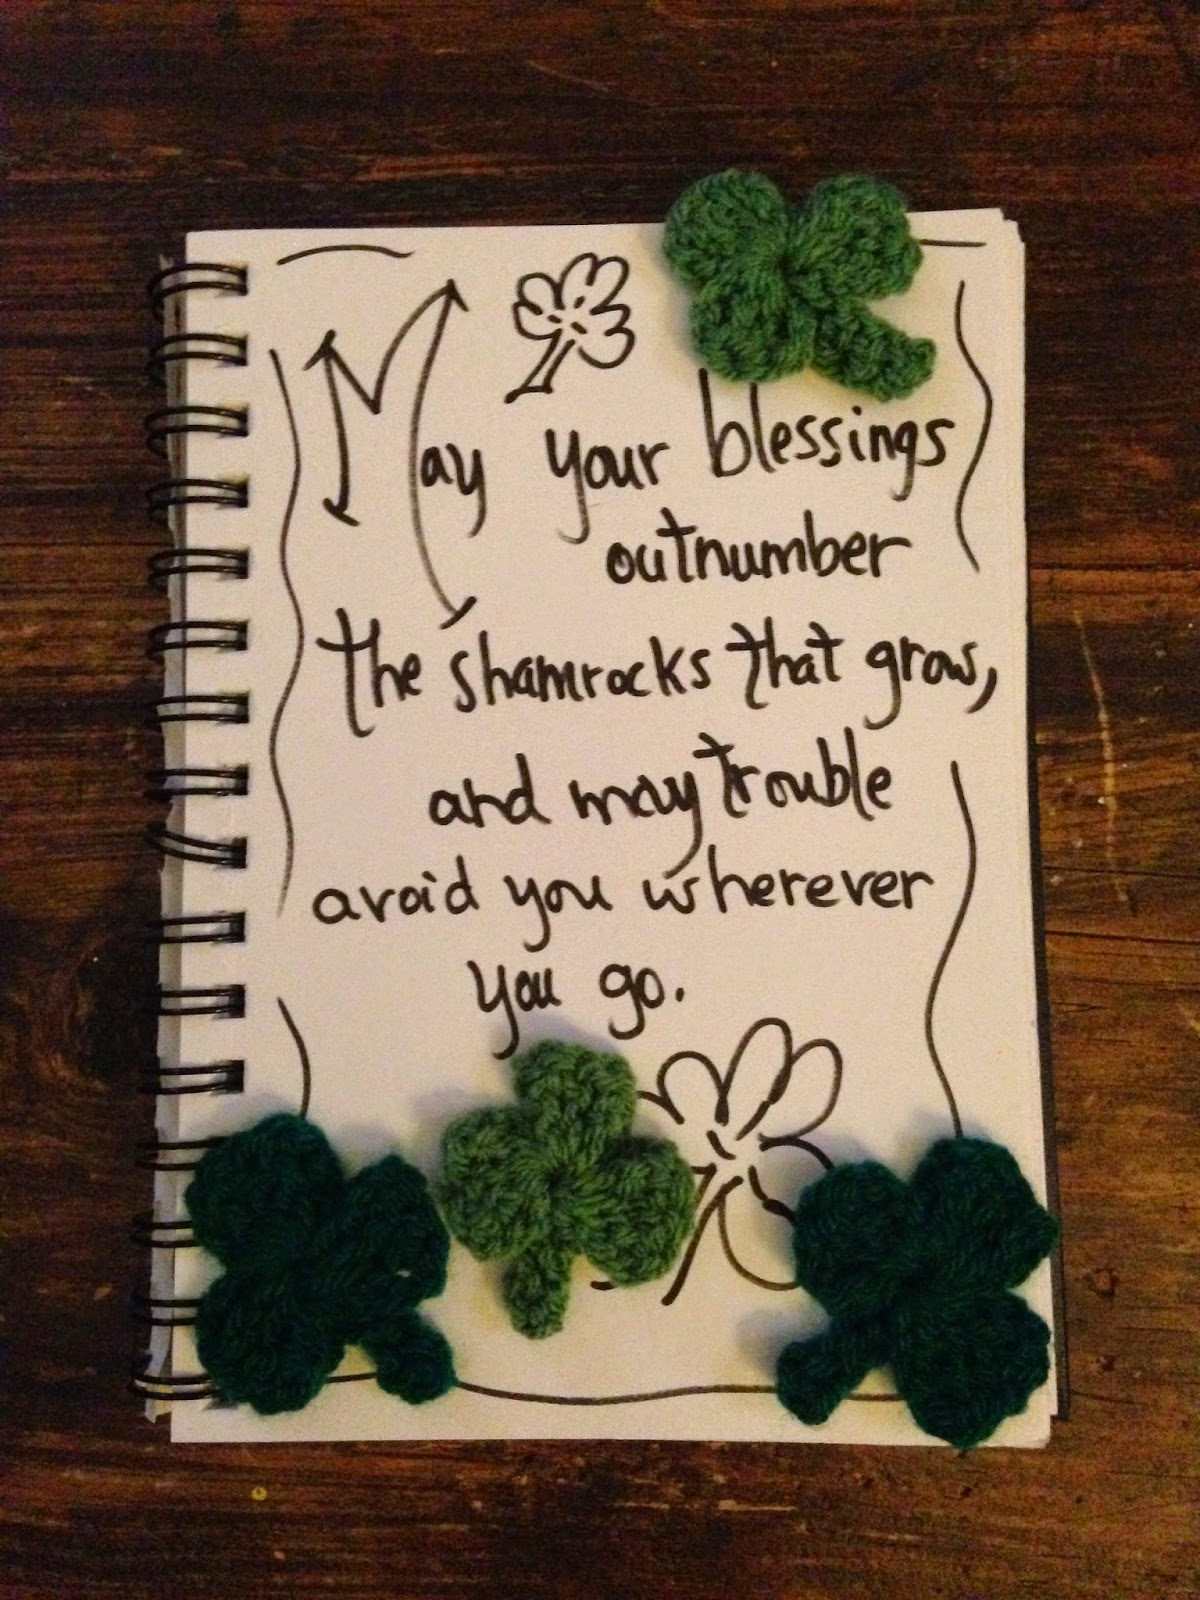 May your blessings
outnumber
the shamrocks that grow,
and may trouble
avoid you wherever
you go.